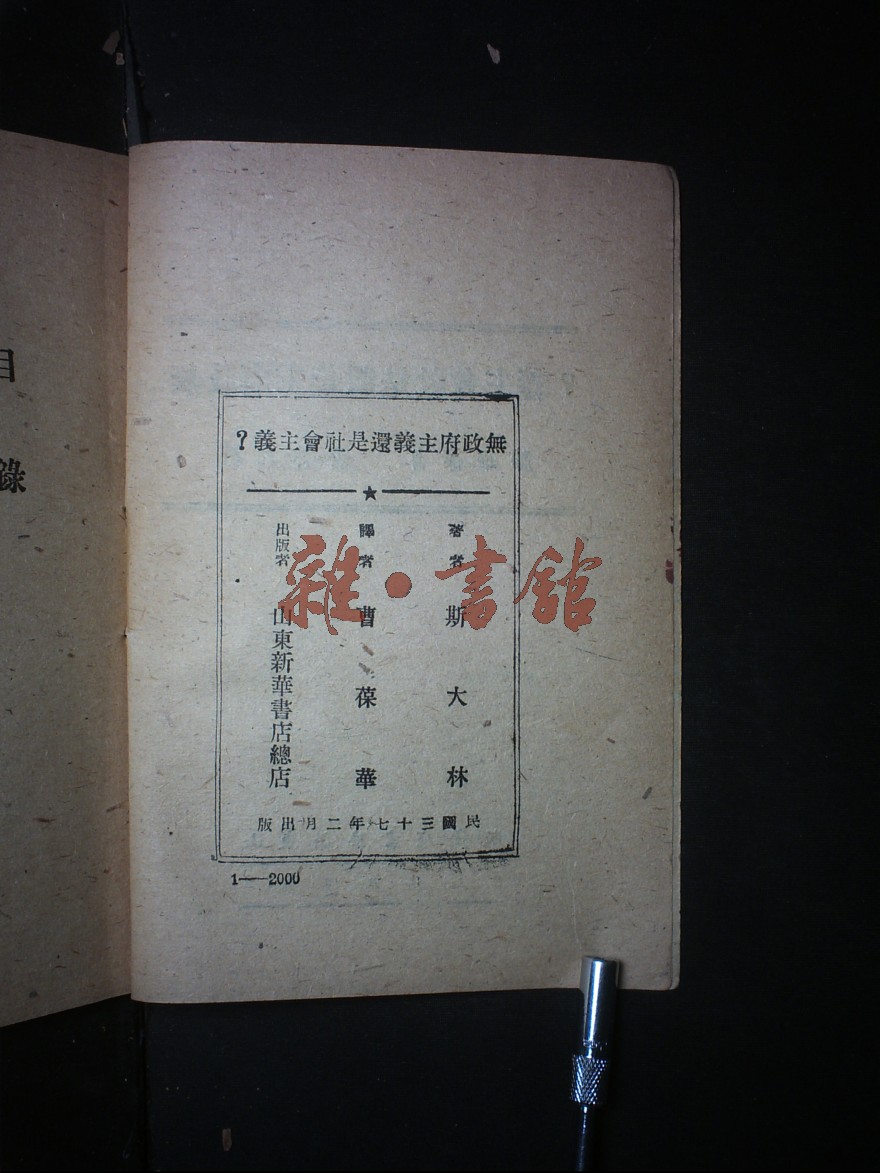 無政府主義還是社會主義？
★
著者 斯大林
譯者 曹葆華
出版者 山東新華書店總店
民國三十七年二月出版
1——2000
目錄
雜·書館